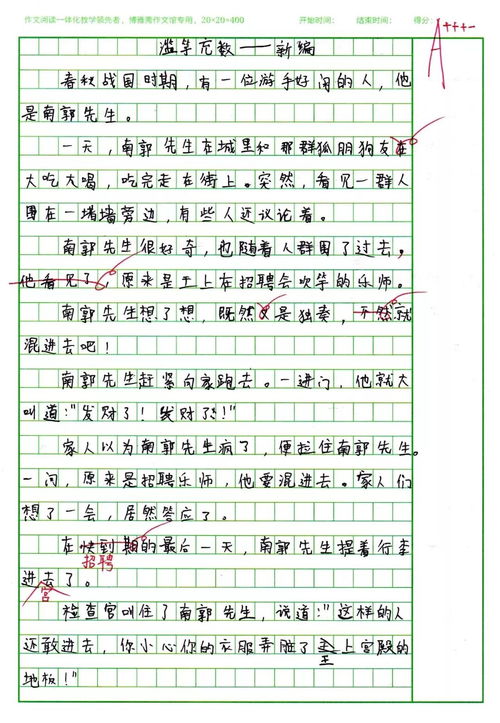 作文阅读一体化教学领先者，博雅苑作文馆专用，20×20=400 开始时间： 结束时间： 得分：
A+++-
滥竽充数——新编
春秋战国时期，有一位游手好闲的人，他
是南郭先生。
一天，南郭先生在城里和那群狐朋狗友在
大吃大喝，吃完走在街上。突然，看见一群人
围在一堵墙旁边，有些人还议论着。
南郭先生很好奇，也随着人群围了过去，
他看见了，原来是王上在招聘会吹竽的乐师。
南郭先生想了想，既然又是独奏，不然就
混进去吧！
南郭先生赶紧向家跑去。一进门，他就大
叫道："发财了！发财了！"
家人以为南郭先生疯了，便拉住南郭先生。
一问，原来是招聘乐师，他要混进去。家人们
想了一会，居然答应了。
在快到期的最后一天，南郭先生提着行李
招聘
进去了。
宫
检查官叫住了南郭先生，说道："这样的人
还敢进去，你小心你的衣服弄脏了王上宫殿的
王
地板！"